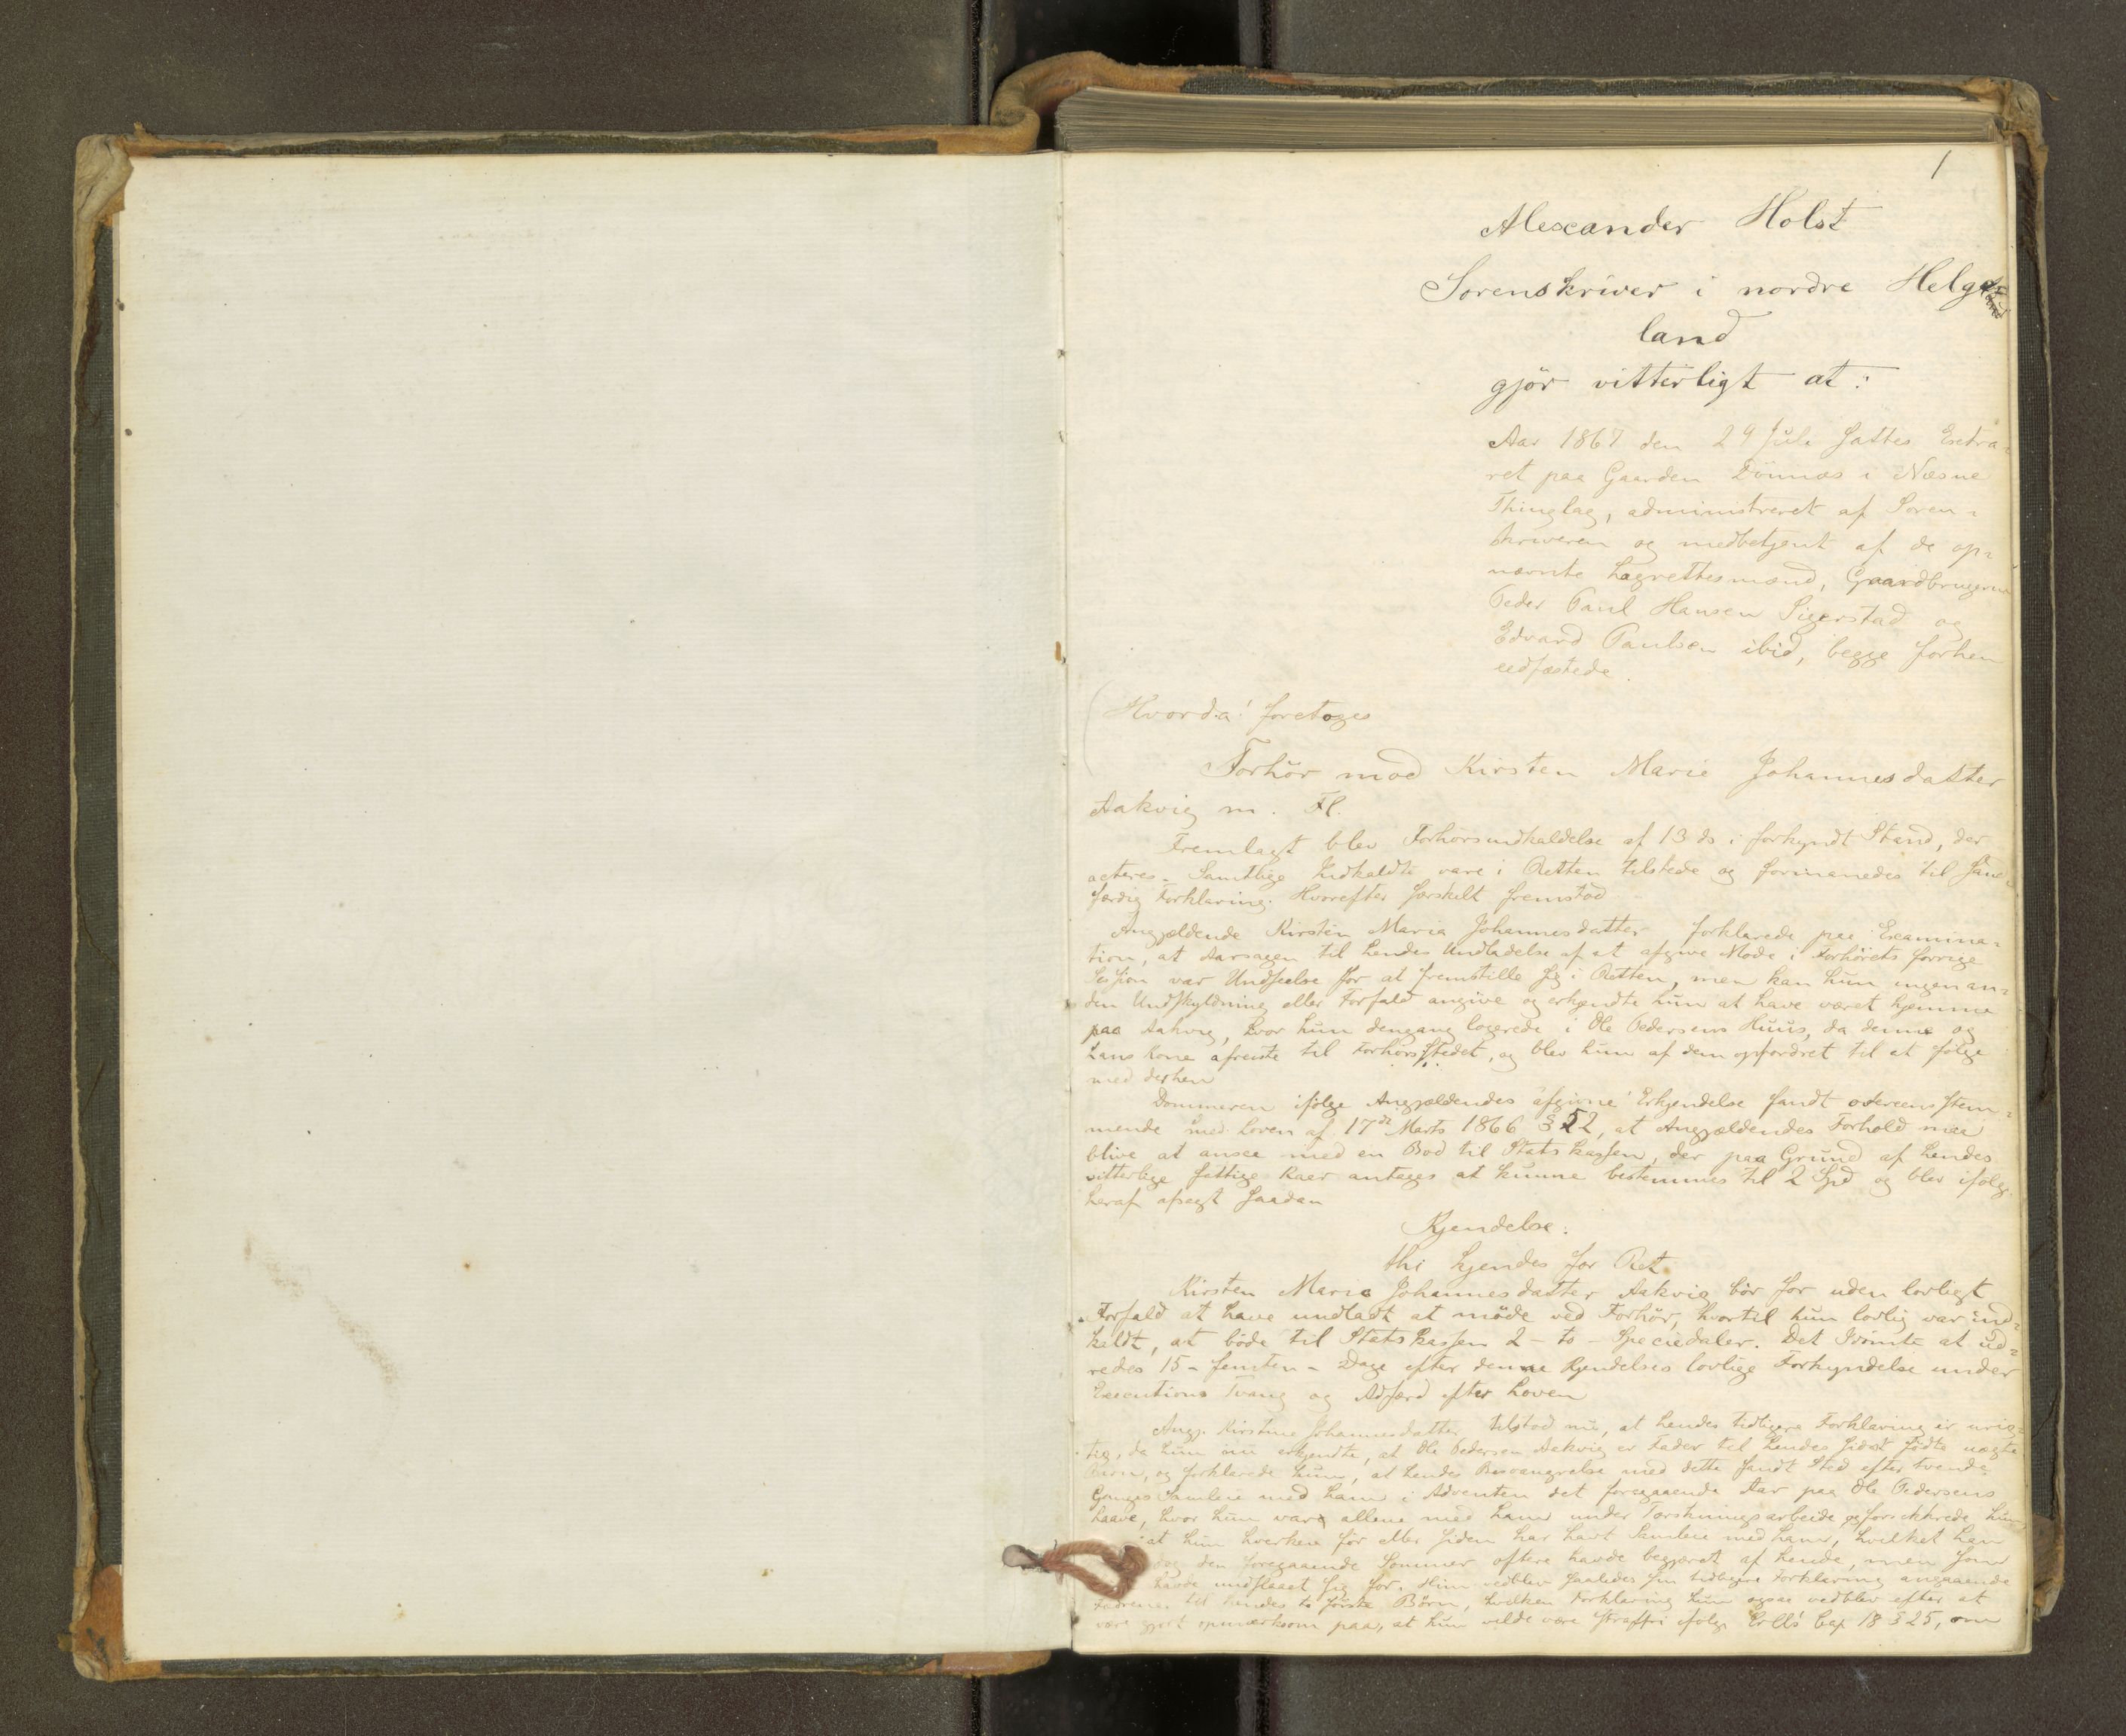 1
Alexander Holst
Sorenskriver i nordre Helge=
land
gjör vitterligt at:
Aar 1867 den 24 Juli sattes Extra=
ret paa Gaarden Dönnæs i Næsne
Thinglag, administreret af Soren=
skriveren og medbetjent af de op=
nævnte Lagrettesmænd, Gaardbrugerne
Peder Paul Hansen Sigerstad og
Edvard Paulsen ibid, begge forhen
eedfæstede.
Hvorda! foretoges
Forhör mod Kirsten Marie Johannesdatter
Aakvig m. Fl.
Fremlagt blev Forhörsindkaldelse af 13 ds i forkyndt Stand, der
acteres. Samtlige Indkaldte vare i Retten tilstede og formanedes til sand=
færdig Forklaring. Hvorefter særskilt fremstod
Angjældende Kirsten Maria Johannesdatter forklarede paa Examina=
tion, at Aarsagen til hendes Undladelse af at afgive Möde i Forhörets forrige
Session var Undseelse for at fremstille sig i Retten, men kan hun ingen an=
den Undskyldning eller Forfald angive og erkjendte hun at have været hjemme
paa Aakvig, hvor hun dengang logerede i Ole Pedersens Huus, da denne og
hans Kone afreiste til Forhörsstedet, og blev hun af dem opfordret til at fölge
med derhen
Dommeren ifölge Angjældendes afgivne Erkjendelse fandt overeensstem=
mende med Loven af 17de Marts 1866 § 52, at Angjældendes Forhold maa
blive at ansee med en Bod til Statskassen, der paa Grund af hendes
vitterlige fattige Kaar antages at kunne bestemmes til 2 Spd og blev ifölge
heraf afsagt saadan
Kjendelse:
thi kjendes for Ret
Kirsten Marie Johannesdatter Aakvig bör for uden lovligt
Forfald at have undladt at möde ved Forhör, hvortil hun lovlig var ind=
kaldt, at böde til Statskassen 2 - to - Speciedaler. Det Idömte at ud=
redes 15 - femten - Dage efter denne Kjendelses lovlige Forkyndelse under
Executions Tvang og Adfærd efter Loven
Angj. Kirstine Johannesdatter tilstod nu, at hendes tidligere Forklaring er urig=
tig, da hun nu erkjendte, at Ole Pedersen Aakvig er Fader til hendes sidst födte uægte
Barn, og forklarede hun, at hendes Besvangrelse med dette fandt Sted efter tvende
Ganges Samleie med ham i Adventen det foregaaende Aar paa Ole Pedersens
Laave, hvor hun var allene med ham under Tærskningsarbeide og forsikkrede hun
at hun hverken för eller siden har havt Samleie med ham, hvilket han
dog den foregaaende Sommer oftere havde begjæret af hende, men som
havde undslaaet sig for. Hun vedblev saaledes sin tidligere Forklaring angaaende
Fædrene til hendes to förste Börn, hvilken Forklaring hun ogsaa vedblev efter at
være gjort opmærksom paa, at hun vilde være straffri ifölge Crls Cap 18 § 25, om